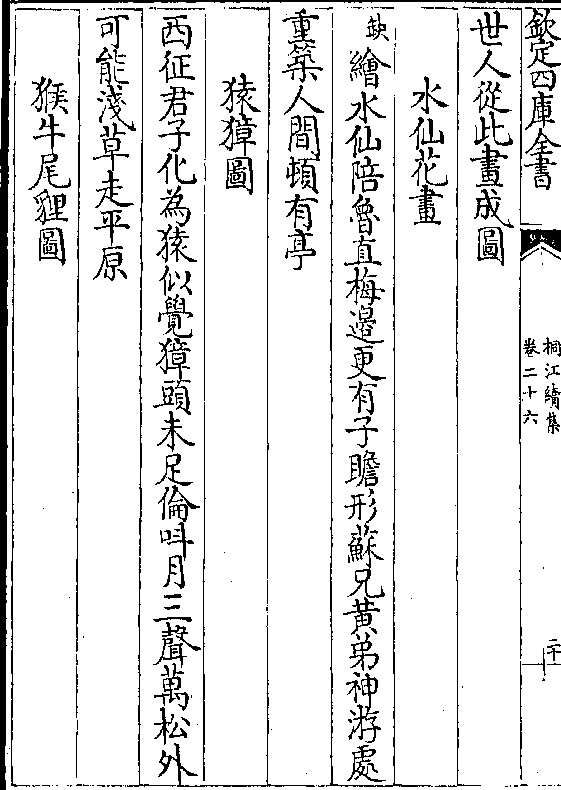 欽定四庫全書
桐江續集
卷二十六
二十
世人從此畫成圖
水仙花畫
缺繪水仙陪魯直梅邊更有子瞻形蘇兄黄弟神游處
重築人間頓有亭
猿獐圖
西征君子化為猿似覺獐頭未足倫呌月三聲萬松外
可能淺草走平原
猴牛尾貍圖